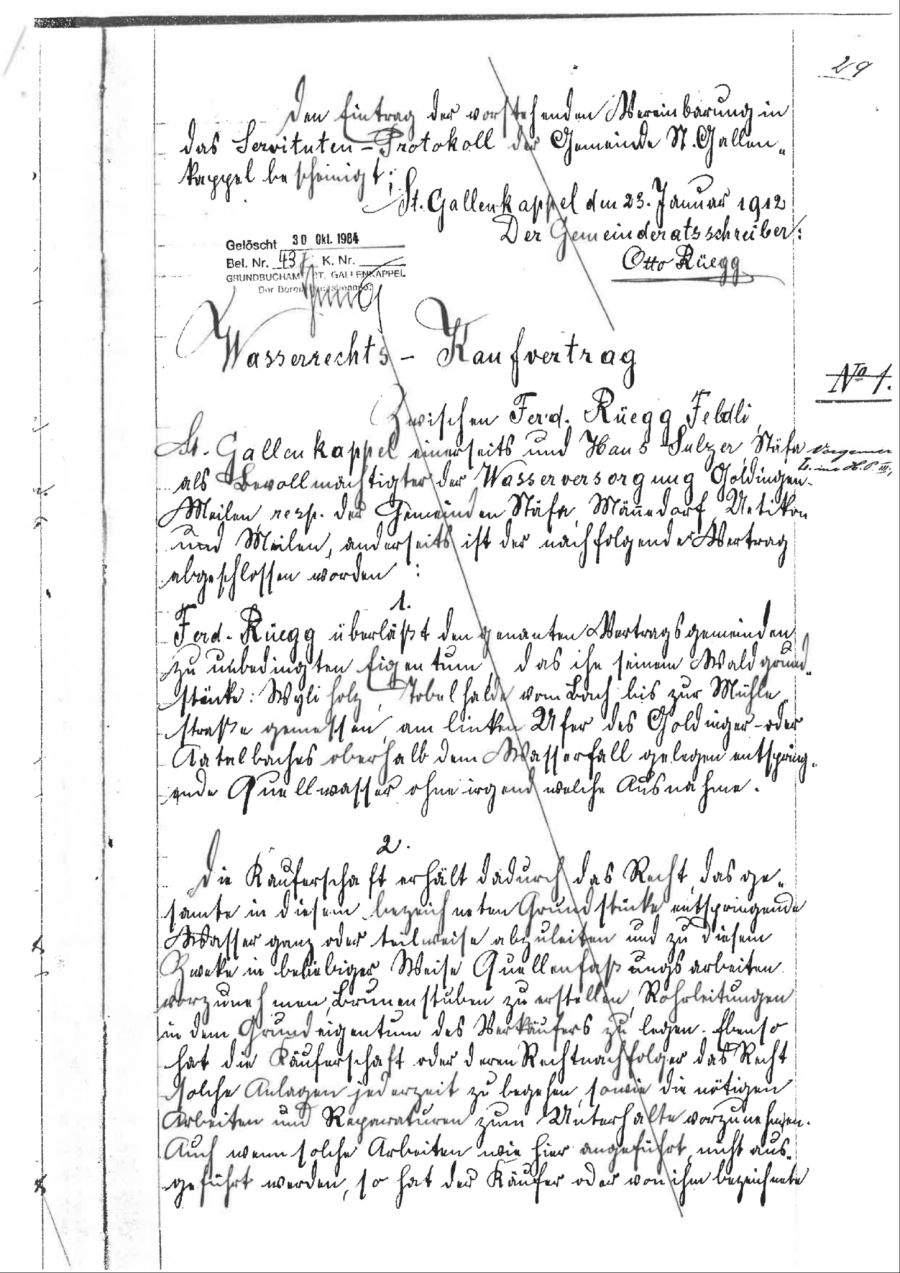 29
Den Eintrag der vorstehenden Vereinbarung in
das Servituten-Protokoll der Gemeinde St. Gallen-
kappel bescheinigt;
St. Gallenkappel den 23. Januar 1912
Der Gemeinderatsschreiber:
Otto Rüegg
Gelöscht 30 Okt. 1984
Bel. Nr. 43 K. Nr.
GRUNDBUCHAMT ST. GALLENKAPPEL
Wasserrechts-Kaufvertrag
No 1.
Zwischen Ferd. Rüegg Feldli,
St. Gallenkappel einerseits und Hans Sulzer, Stäfa
als Bevollmächtigter der Wasserversorgung Goldingen-
Meilen, resp. der Gemeinden Stäfa, Männedorf, Uetikon
und Meilen, anderseits ist der nachfolgende Vertrag
abgeschlossen worden:
1.
Ferd. Rüegg überläßt den genanten Vertragsgemeinden
zu unbedingten Eigentum, das in seinem Waldgrund-
stücke: Wyliholz, Tobelhalde vom Bach bis zur Mühle
straße gemessen, am linken Ufer des Goldinger- oder
Aatalbaches oberhalb dem Wasserfall gelegen entspring-
ende Quellwasser ohne irgend welche Ausnahme.
2.
Die Käuferschaft erhält dadurch das Recht, das ge-
samte in diesem bezeichneten Grundstücke entspringende
Wasser ganz oder teilweise abzuleiten und zu diesem
Zweke in beliebiger Weise Quellenfaßungsarbeiten
vorzunehmen, Brunenstuben zu erstellen, Rohrleitungen
in dem Grundeigentum des Verkäufers zu legen. Ebenso
hat die Käuferschaft oder deren Rechtnachfolger das Recht
solche Anlagen jederzeit zu begehen, sowie die nötigen
Arbeiten und Reparaturen zum Unterhalte vorzunehmen.
Auch wenn solche Arbeiten wie hier angeführt, nicht aus-
geführt werden, so hat der Käufer oder von ihm bezeichnete